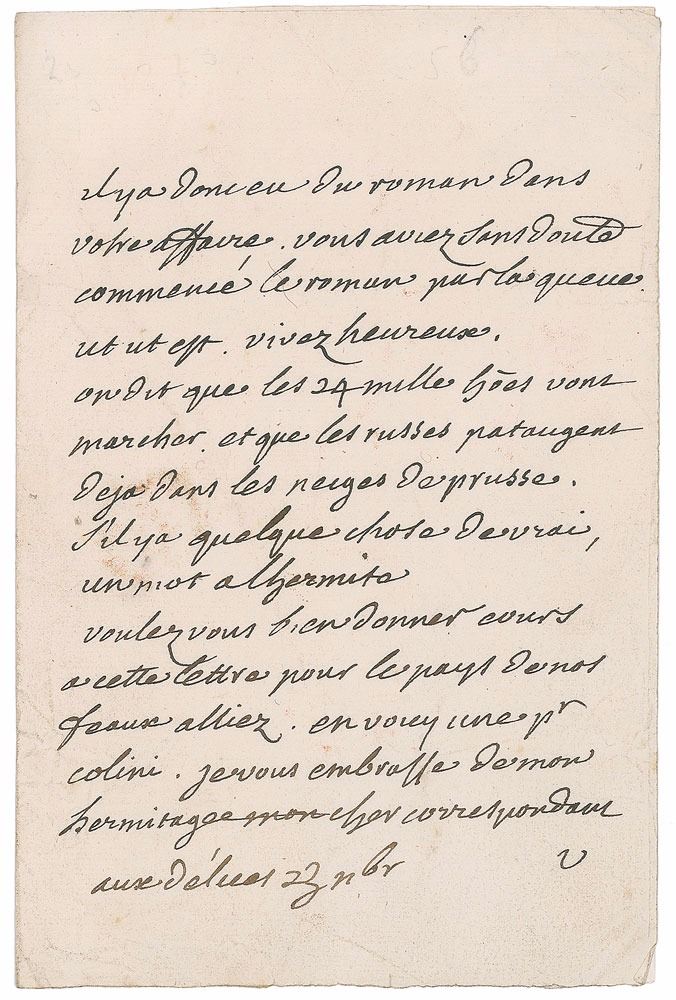 il y a donc eu du roman dans
votre affaire. vous aviez sans doute
commencé le roman par la queue.
ut ut est. vivez heureux.
on dit que les 24 mille hões vont
marcher. et que les russes pataugent
deja dans les neiges de prusse.
S'il y a quelque chose de vrai,
un mot a lhermite
voulez vous bien donner cours
a cette lettre pour le pays de nos
feaux alliez. en voicy une pr
colini. je vous embrasse de mon
hermitage mon cher correspondant
aux délices 23 nbr
V